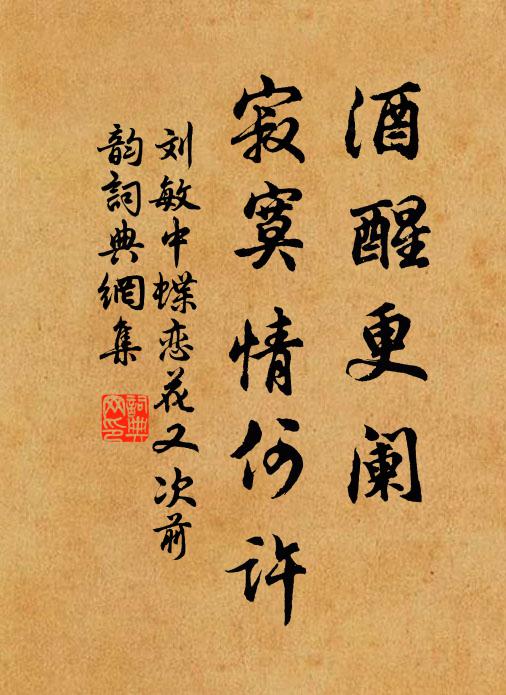 酒醒更阑
寂寞情何许
刘敏中蝶恋花又次前
韵詞典網集
詞典
网印